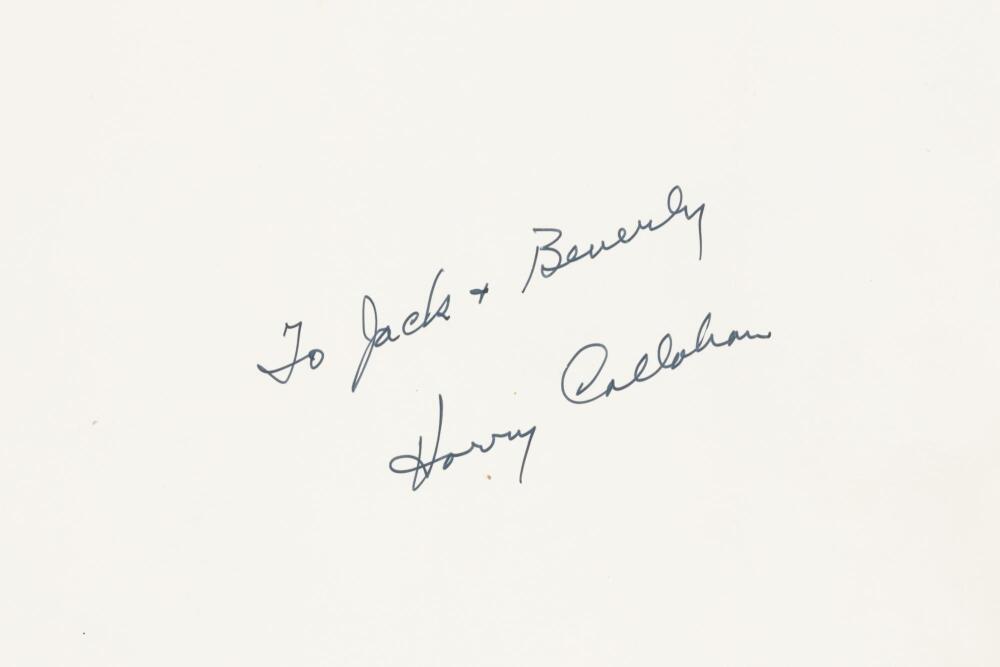 To Jack + Beverly
Harry Callahan